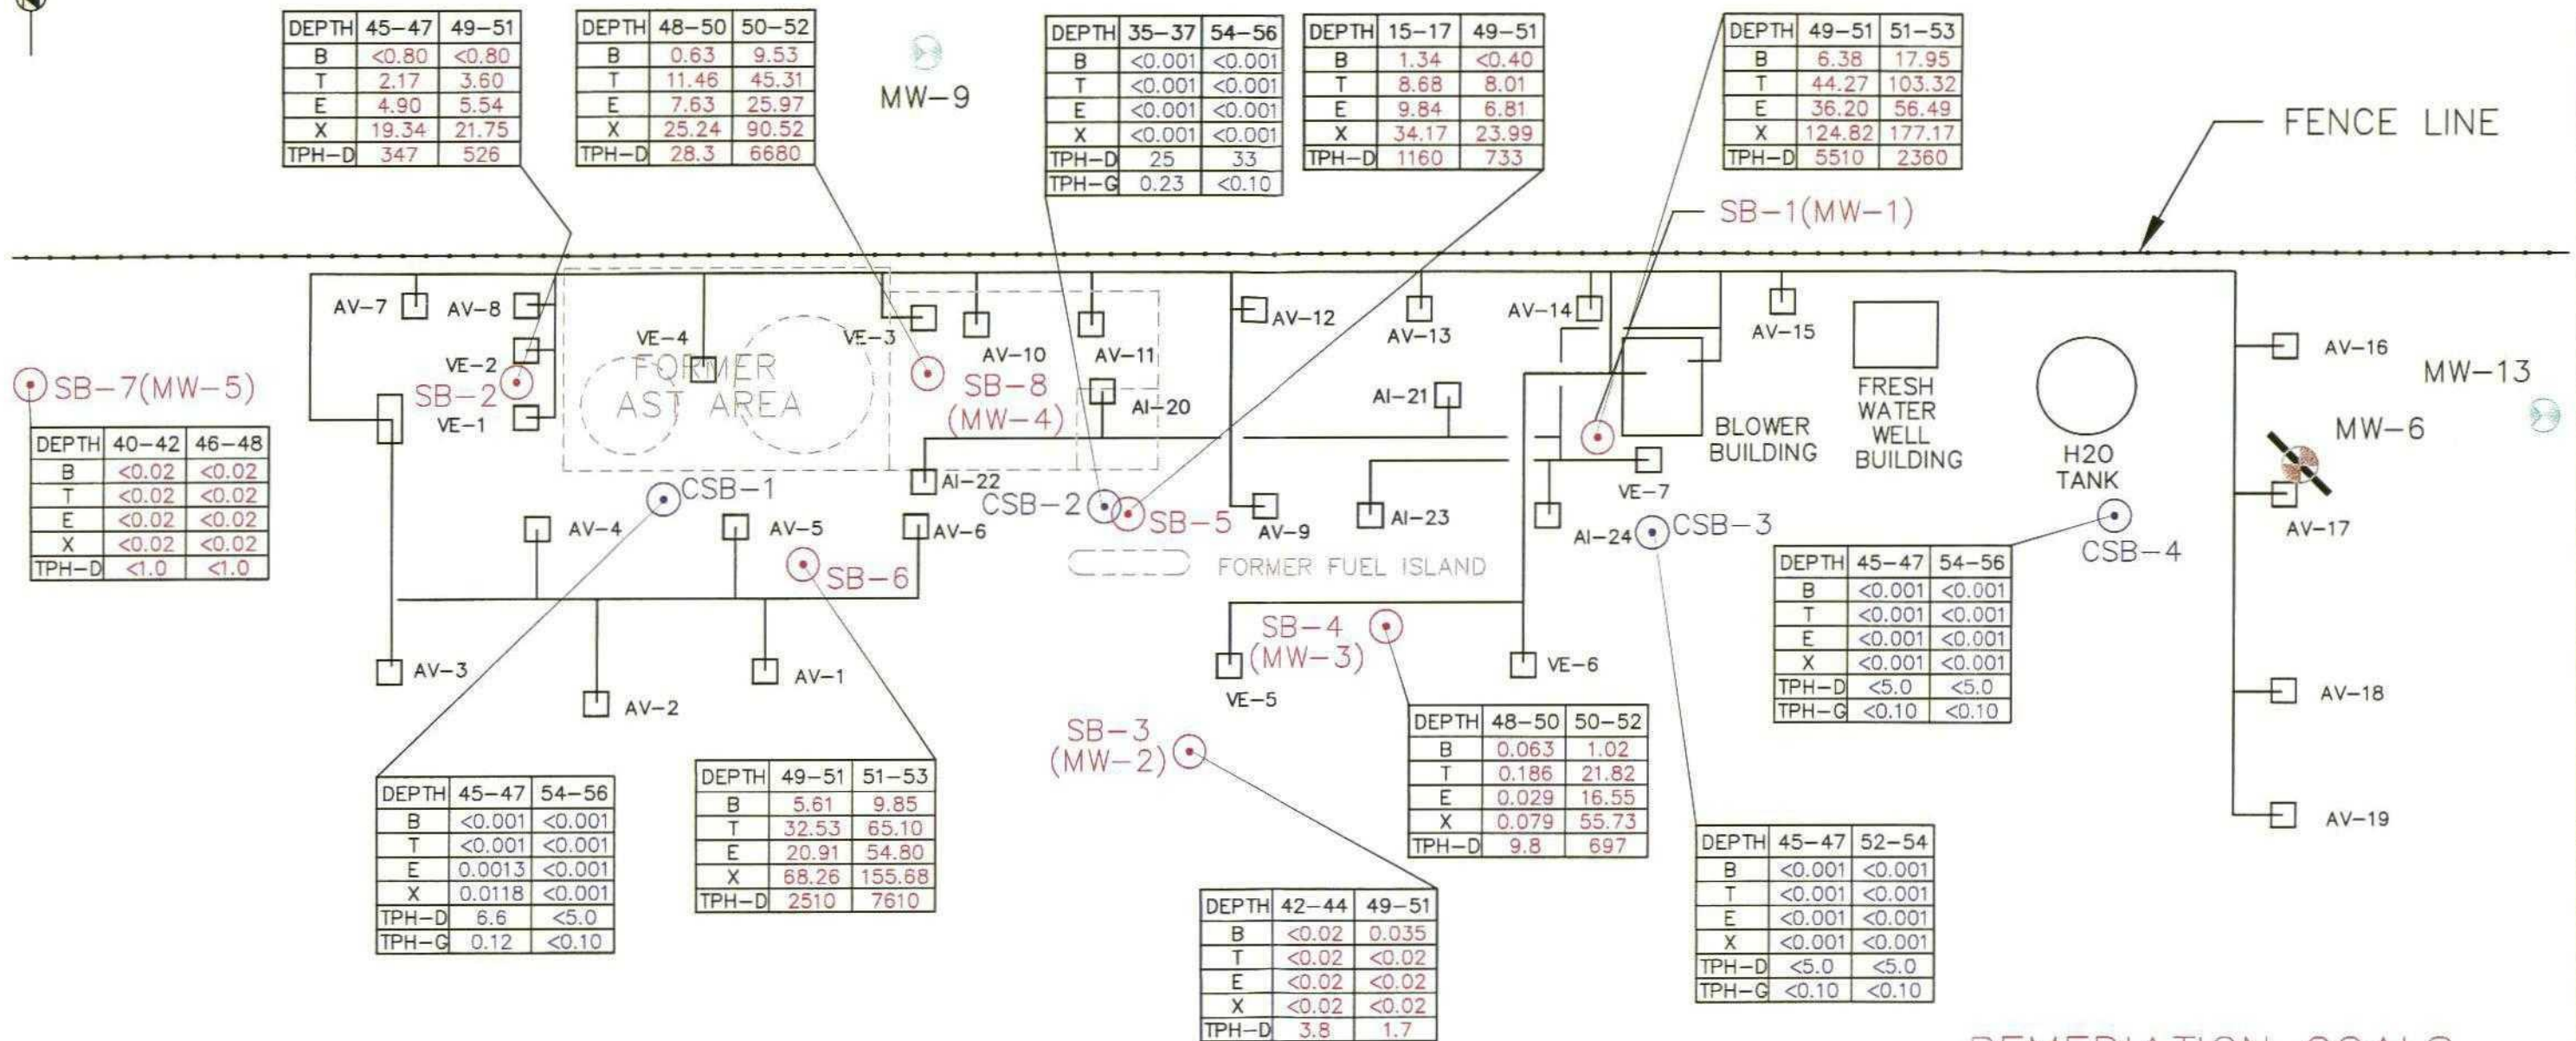 DEPTH 45-47 49-51
B <0.80 <0.80
T 2.17 3.60
E 4.90 5.54
X 19.34 21.75
TPH-D 347 526
DEPTH 48-50 50-52
B 0.63 9.53
T 11.46 45.31
E 7.63 25.97
X 25.24 90.52
TPH-D 28.3 6680
MW-9
DEPTH 35-37 54-56
B <0.001 <0.001
T <0.001 <0.001
E <0.001 <0.001
X <0.001 <0.001
TPH-D 25 33
TPH-G 0.23 <0.10
DEPTH 15-17 49-51
B 1.34 <0.40
T 8.68 8.01
E 9.84 6.81
X 34.17 23.99
TPH-D 1160 733
DEPTH 49-51 51-53
B 6.38 17.95
T 44.27 103.32
E 36.20 56.49
X 124.82 177.17
TPH-D 5510 2360
FENCE LINE
SB-1(MW-1)
AV-7
AV-8
VE-4
VE-3
AV-10
AV-11
AV-12
AV-13
AV-14
AV-15
AV-16
VE-2
SB-2
VE-1
FORMER
AST AREA
SB-8
(MW-4)
AI-20
AI-21
BLOWER
BUILDING
FRESH
WATER
WELL
BUILDING
H20
TANK
MW-13
MW-6
AV-17
SB-7(MW-5)
DEPTH 40-42 46-48
B <0.02 <0.02
T <0.02 <0.02
E <0.02 <0.02
X <0.02 <0.02
TPH-D <1.0 <1.0
CSB-1
AI-22
CSB-2
SB-5
AV-9
AI-23
VE-7
AI-24
CSB-3
CSB-4
AV-4
AV-5
AV-6
SB-6
FORMER FUEL ISLAND
DEPTH 45-47 54-56
B <0.001 <0.001
T <0.001 <0.001
E <0.001 <0.001
X <0.001 <0.001
TPH-D <5.0 <5.0
TPH-G <0.10 <0.10
AV-3
AV-2
AV-1
SB-4
(MW-3)
VE-5
VE-6
AV-18
AV-19
SB-3
(MW-2)
DEPTH 48-50 50-52
B 0.063 1.02
T 0.186 21.82
E 0.029 16.55
X 0.079 55.73
TPH-D 9.8 697
DEPTH 45-47 54-56
B <0.001 <0.001
T <0.001 <0.001
E 0.0013 <0.001
X 0.0118 <0.001
TPH-D 6.6 <5.0
TPH-G 0.12 <0.10
DEPTH 49-51 51-53
B 5.61 9.85
T 32.53 65.10
E 20.91 54.80
X 68.26 155.68
TPH-D 2510 7610
DEPTH 45-47 52-54
B <0.001 <0.001
T <0.001 <0.001
E <0.001 <0.001
X <0.001 <0.001
TPH-D <5.0 <5.0
TPH-G <0.10 <0.10
DEPTH 42-44 49-51
B <0.02 0.035
T <0.02 <0.02
E <0.02 <0.02
X <0.02 <0.02
TPH-D 3.8 1.7
REMEDIATION GOALS